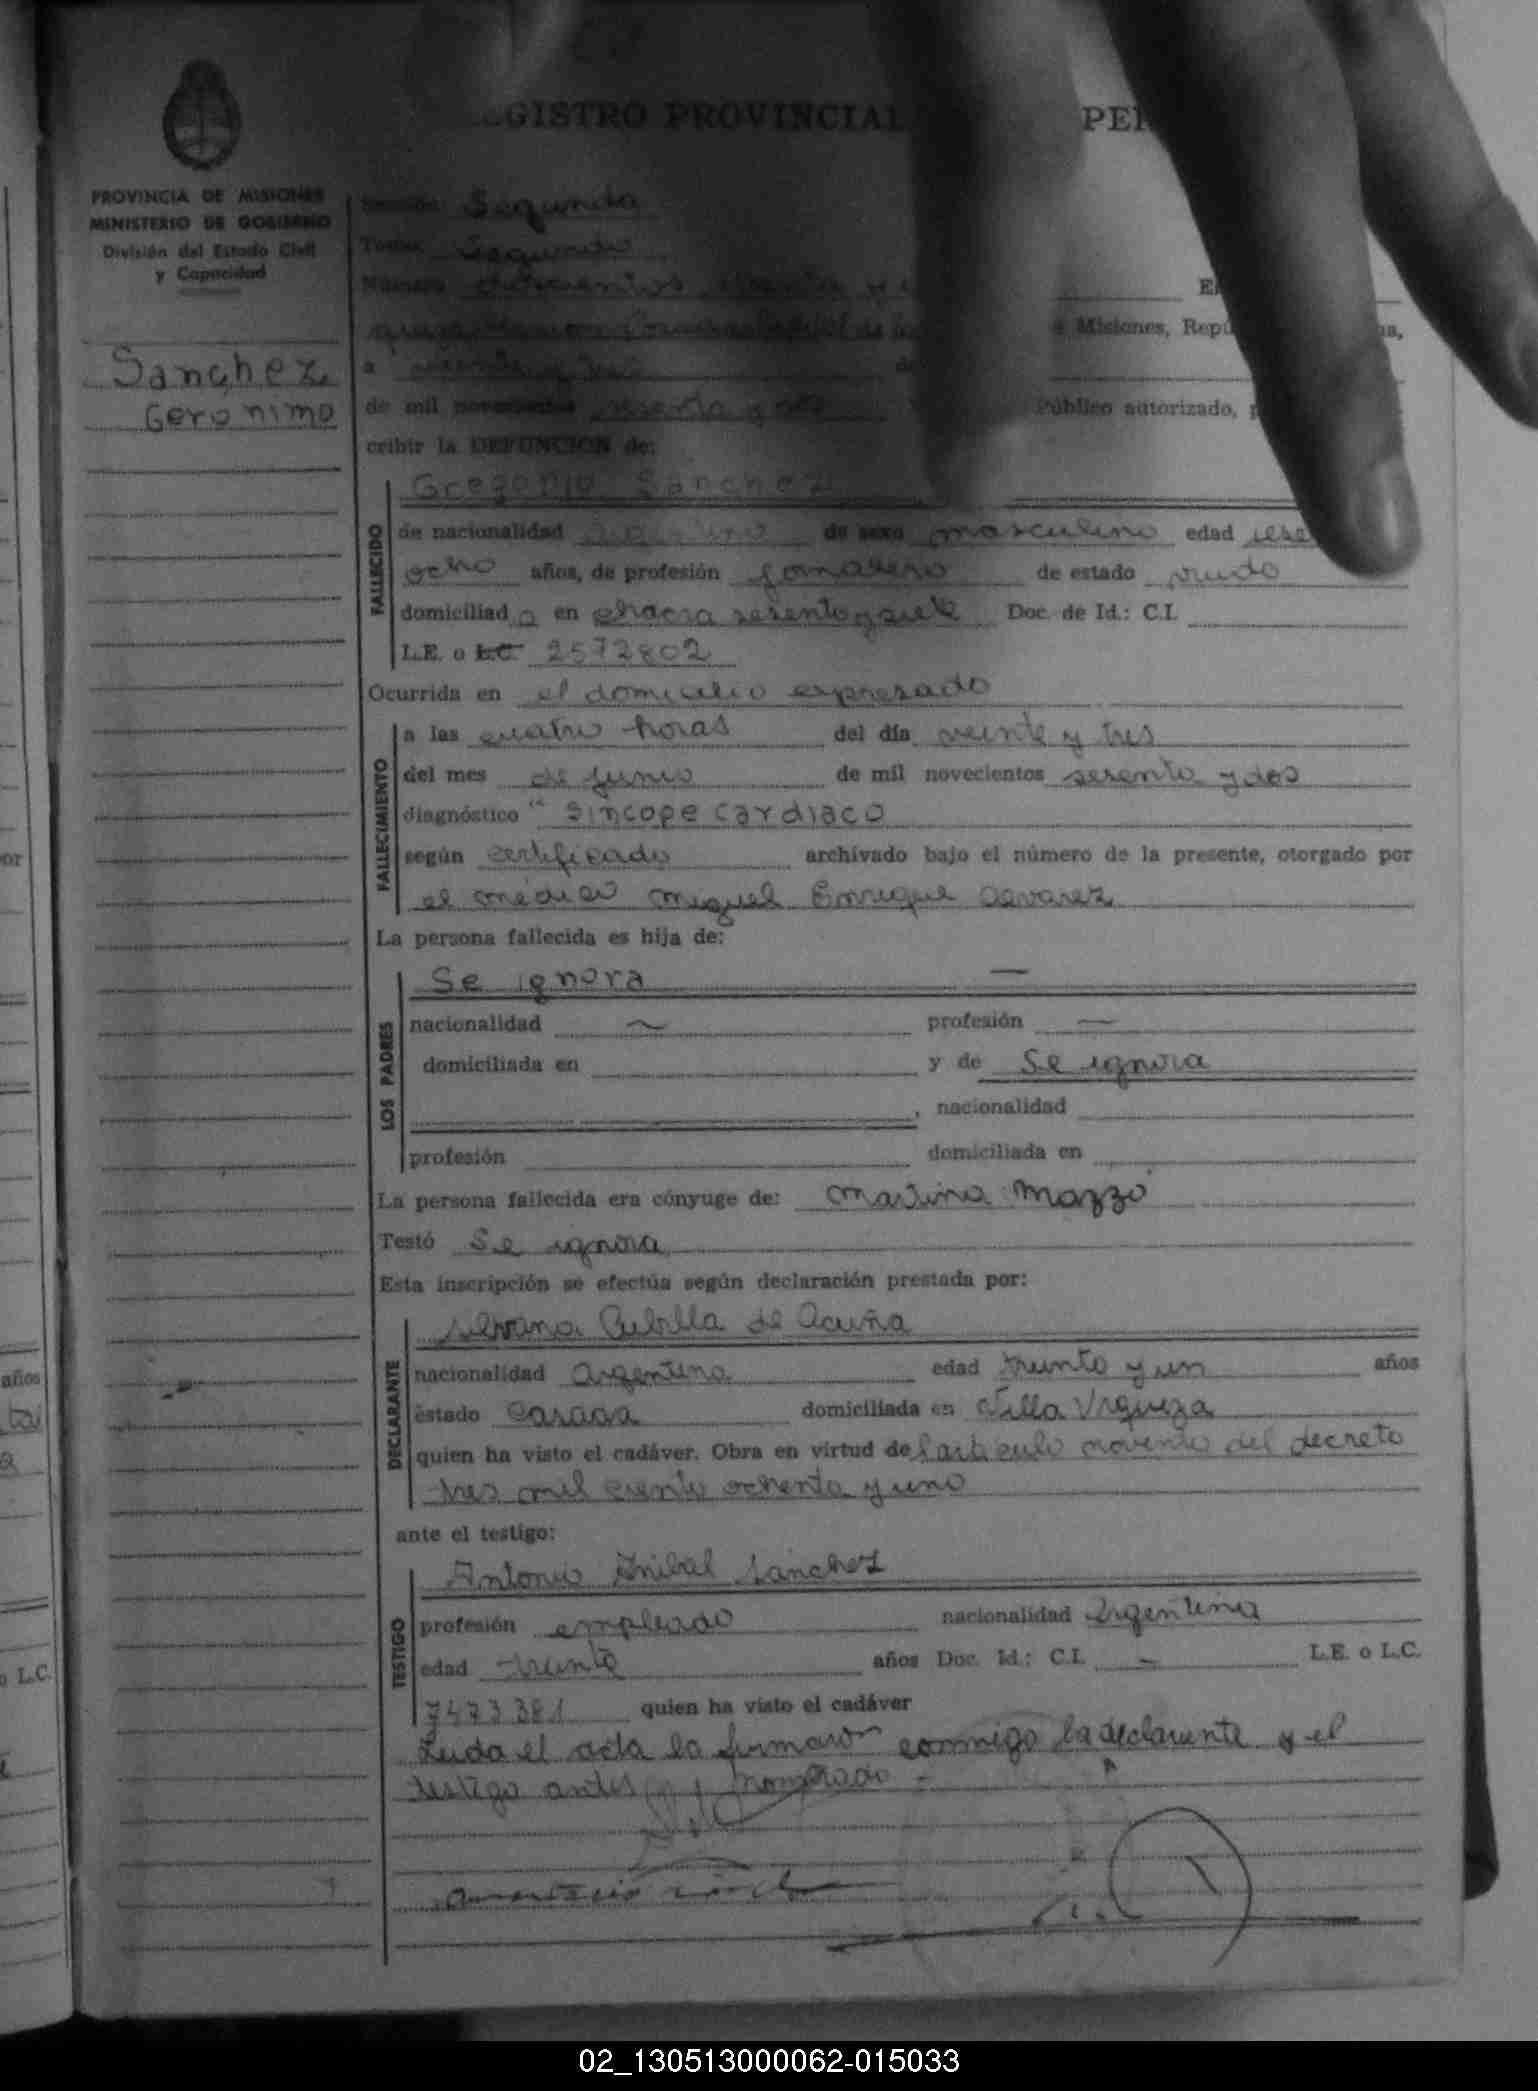 GISTRO PROVINCIAL PER
PROVINCIA DE MISIONES
MINISTERIO DE GOBIERNO
División del Estado Civil
y Capacidad
Sanchez
Geronimo
Sección Segunda
Tomo Segundo
Número
Misiones, Repú as,
a veinte y tres
de mil novecientos sesenta y dos Público autorizado, p
cribir la DEFUNCION de:
FALLECIDO
Sanchez
de nacionalidad argentino de sexo masculino edad sese
ocho años, de profesión jornalero de estado viudo
domiciliad o en chacra sesenta y siete Doc. de Id.: C.I.
L.E. o L.C. 2572802
Ocurrida en el domicilio expresado
FALLECIMIENTO
a las cuatro horas del día veinte y tres
del mes de junio de mil novecientos sesenta y dos
diagnóstico " sincope cardiaco
según certificado archivado bajo el número de la presente, otorgado por
el médico Miguel Enrique Alvarez
La persona fallecida es hija de:
LOS PADRES
Se ignora —
nacionalidad ~ profesión —
domiciliada en y de Se ignora
, nacionalidad
profesión domiciliada en
La persona fallecida era cónyuge de: Martina Mazzo
Testó Se ignora
Esta inscripción se efectúa según declaración prestada por:
DECLARANTE
Silvana Cubilla de Acuña
nacionalidad Argentina edad treinta y un años
estado Casada domiciliada en Villa Urquiza
quien ha visto el cadáver. Obra en virtud del articulo noveno del decreto
tres mil ciento ochenta y uno
ante el testigo:
TESTIGO
Antonio Anibal Sanchez
profesión empleado nacionalidad Argentina
edad treinta años Doc. Id.: C.I. — L.E. o L.C.
7473381 quien ha visto el cadáver
Leida el acta la firmaron conmigo la declarante y el
testigo antes nombrado
años
o L.C.
02_130513000062-015033